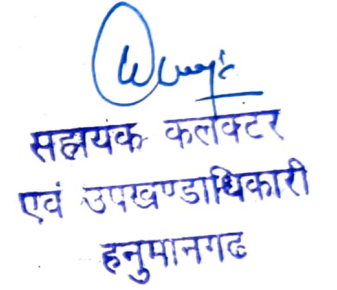 सहायक कलेक्टर
एवं उपखण्डाधिकारी
हनुमानगढ